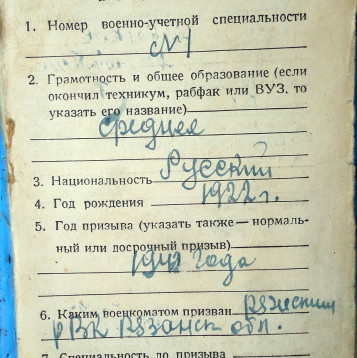 1. Номер военно-учетной специальности
№1
2. Грамотность и общее образование (если
окончил техникум, рабфак или ВУЗ. то
указать его название)
среднее
3. Национальность Русский
4. Год рождения 1922 г.
5. Год призыва (указать также — нормаль-
ный или досрочный призыв)
1941 года
6. Каким военкоматом призван
РВК обл.
7. Специальность до призыва